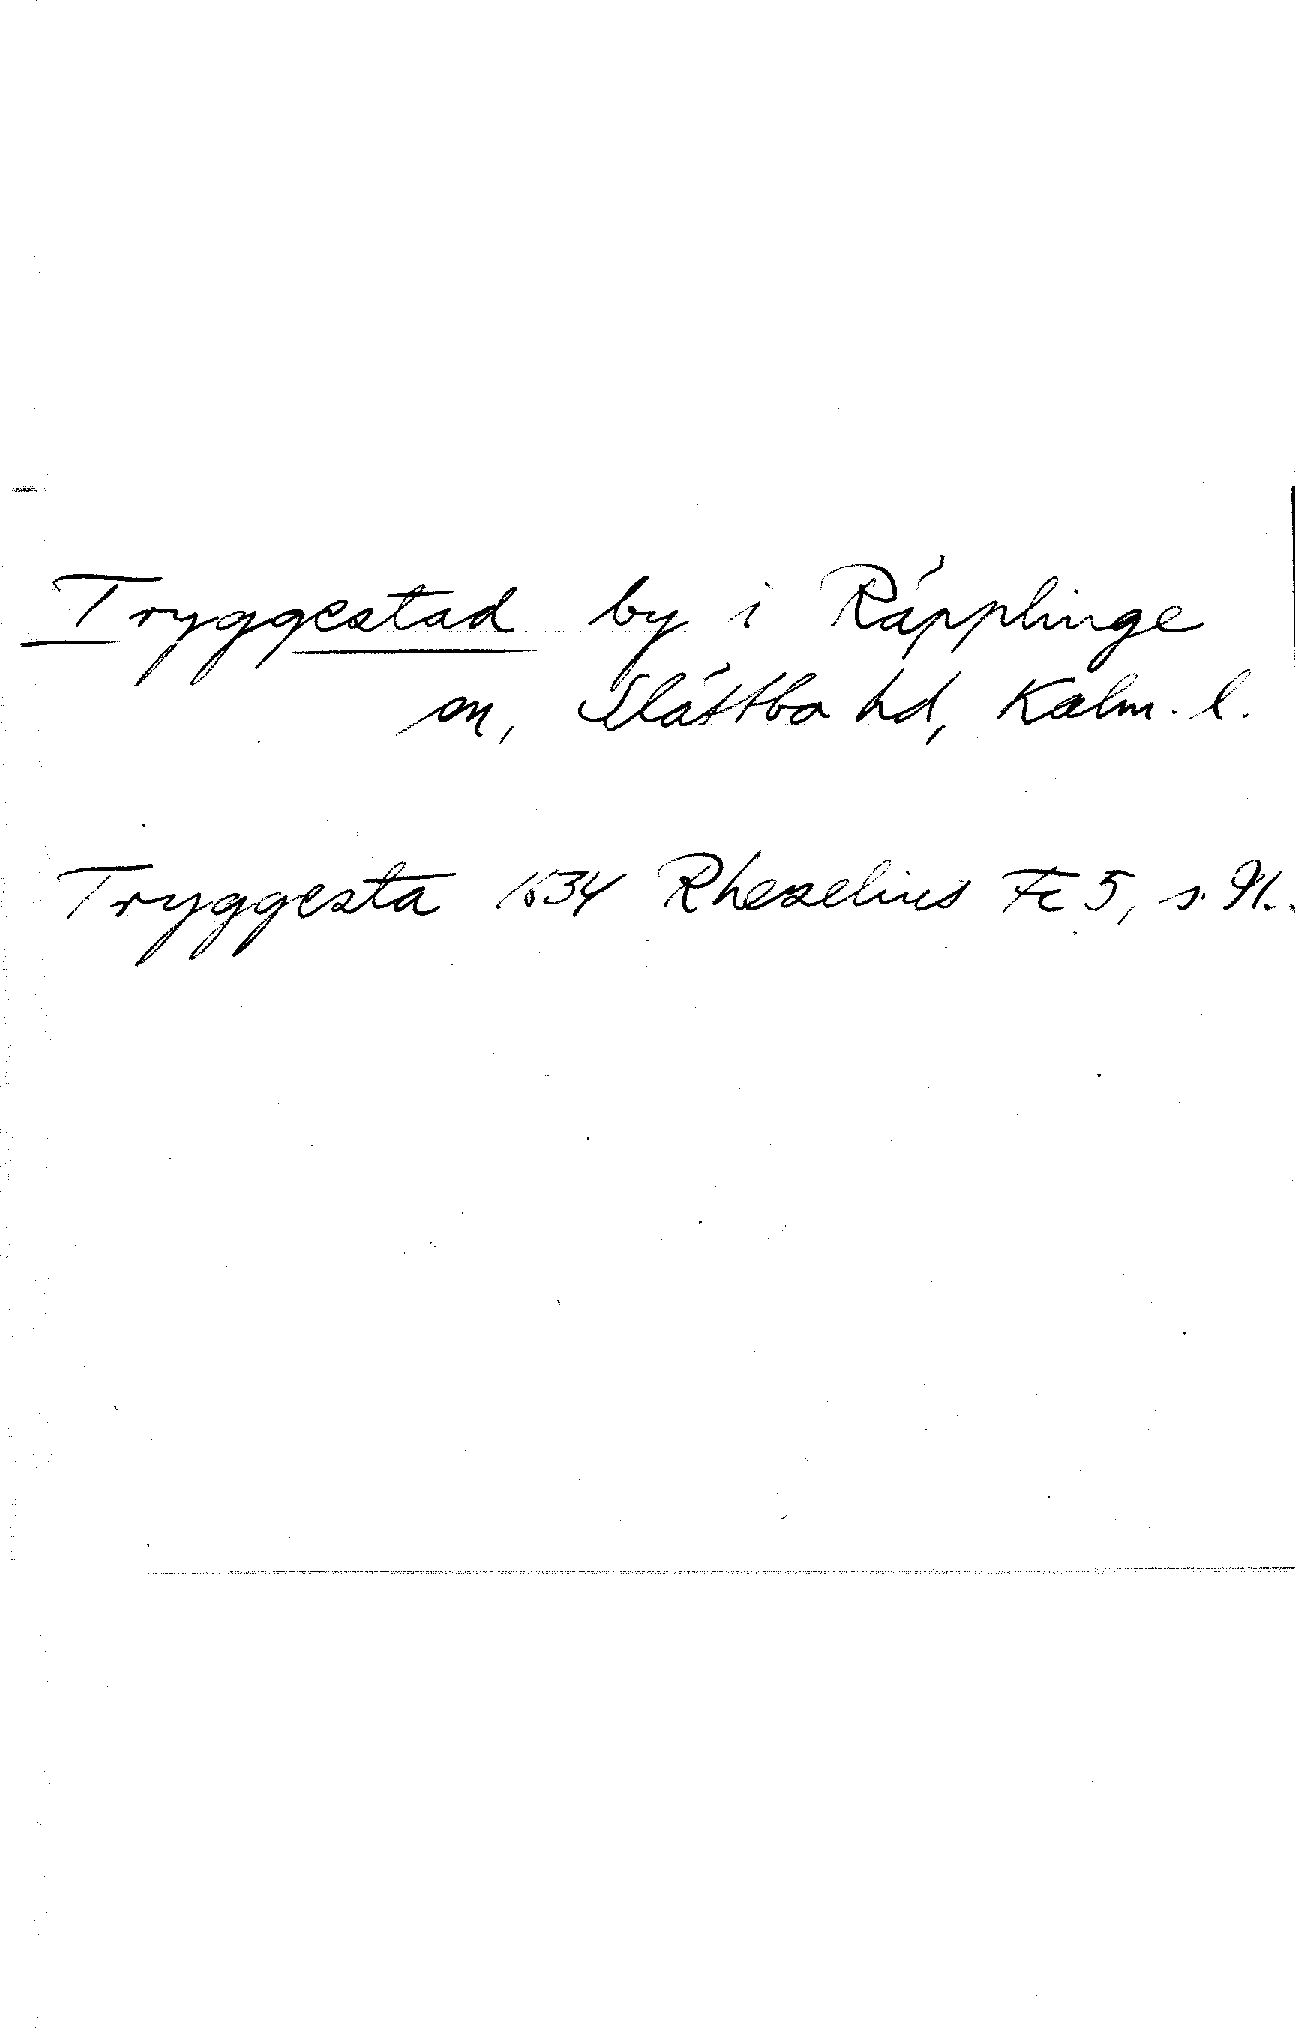 Tryggestad by i Räpplinge
sn, Slättbo hd, Kalm. l.
Tryggesta 1634 Rhezelius Fc 5, s. 91.